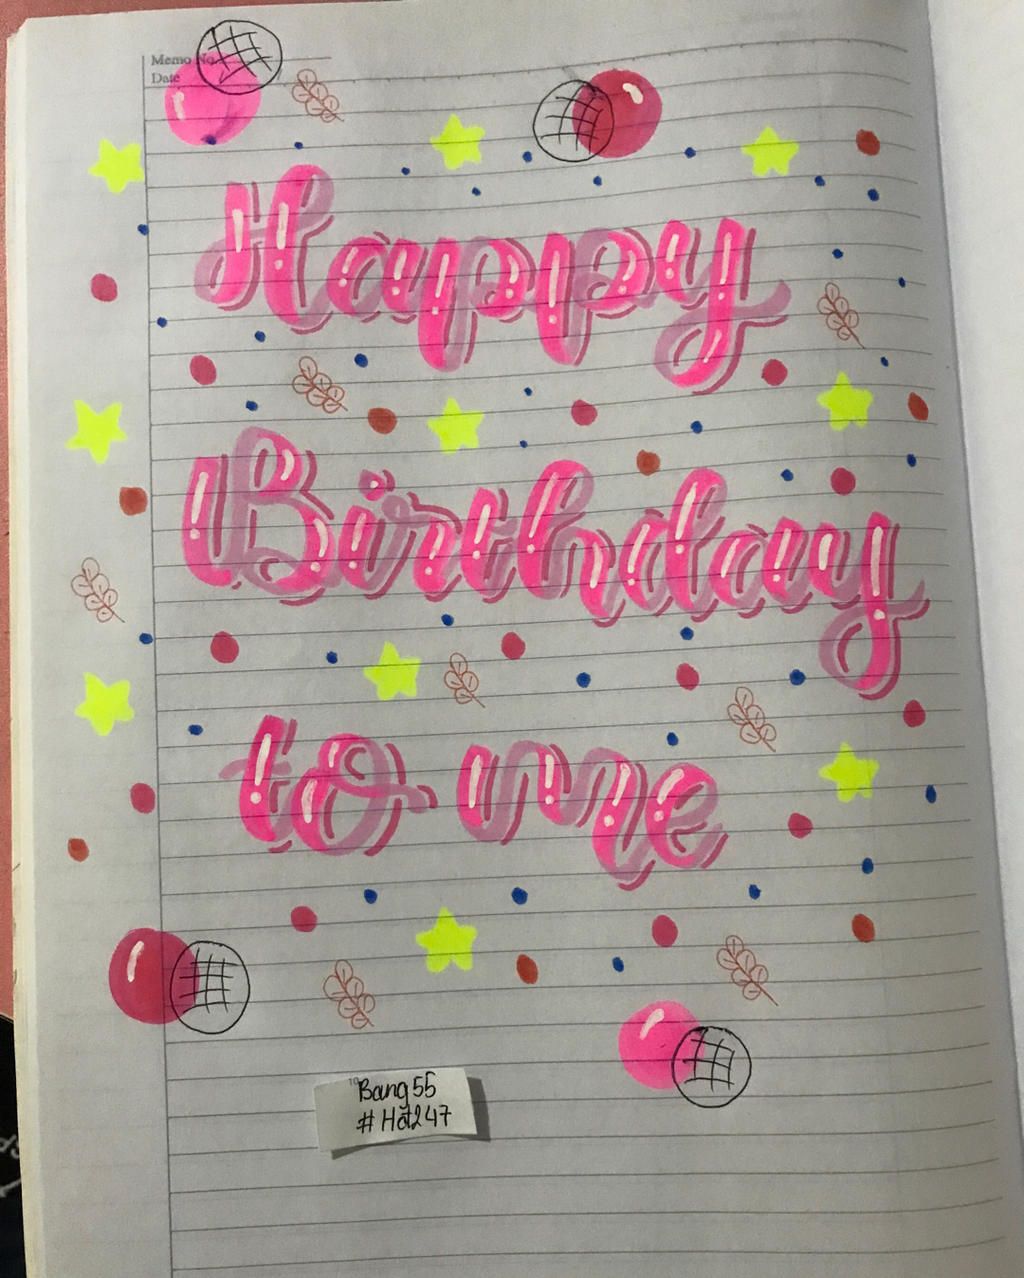 Memo No.
Date
Happy
Birthday
to me
Bang55
#Hát247